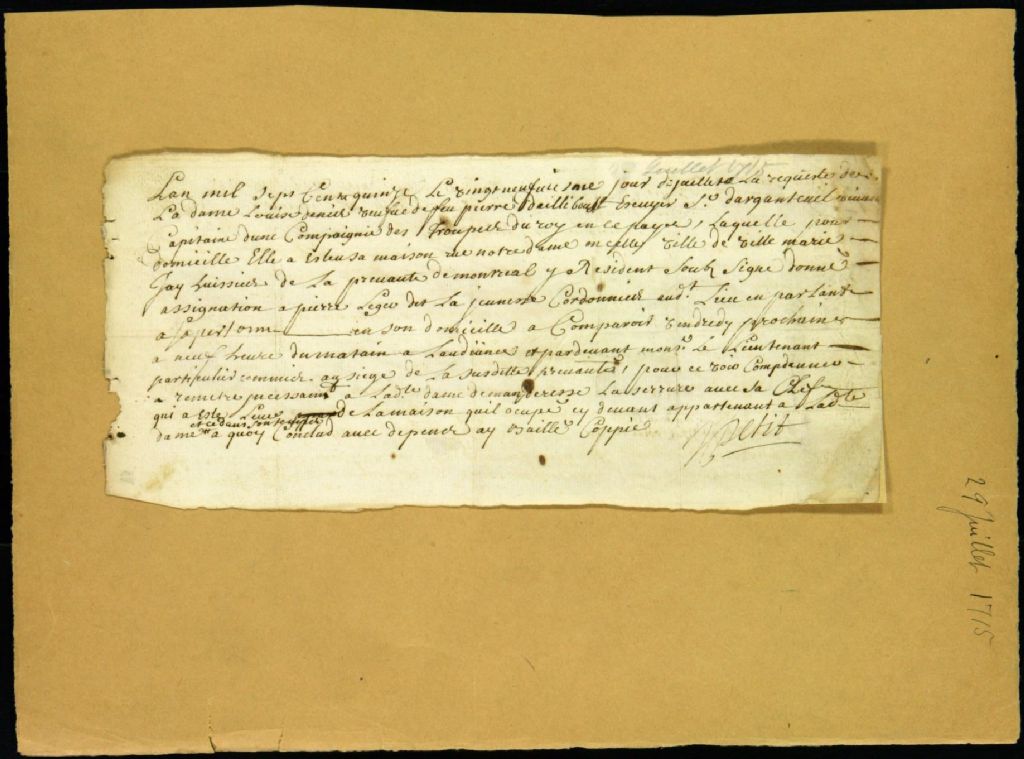 Juillet 1715
Lan mil sept Cent quinze Le vingt neufuieme jour de juillet a La requeste de
La dame Louise denis veufue de feu pierre dailliboust Escuyer Sr darganteuil viuant
Capitaine dune Compaignie des troupes du roy en ce payis, Laquelle pour
domicille Elle a Esleu sa maison rue notre dame en celle ville de ville marie
Jay huissier de La preuauté de montreal y Résident Soubz Signé donné
assignation a pierre Leger dit La jeunesse Cordonnier audt Lieu en parlant
a sa personne en son domicille a Comparoir Vendredy prochain
a neuf heure du matain a Laudiance et pardeuant monsr Le Lieutenant
particulier commis au siege de La susditte preuauté, pour ce voir Compdenner
a remetre jncessamt a Ladte dame demanderesse La serrure auec sa Clef
qui a Esté Leuée de La maison quil occupe cy deuant appartenant a Ladte
et ce dans
dame a quoy Conclud auec depence ay baillé Coppie
Petit
29 Juillet 1715